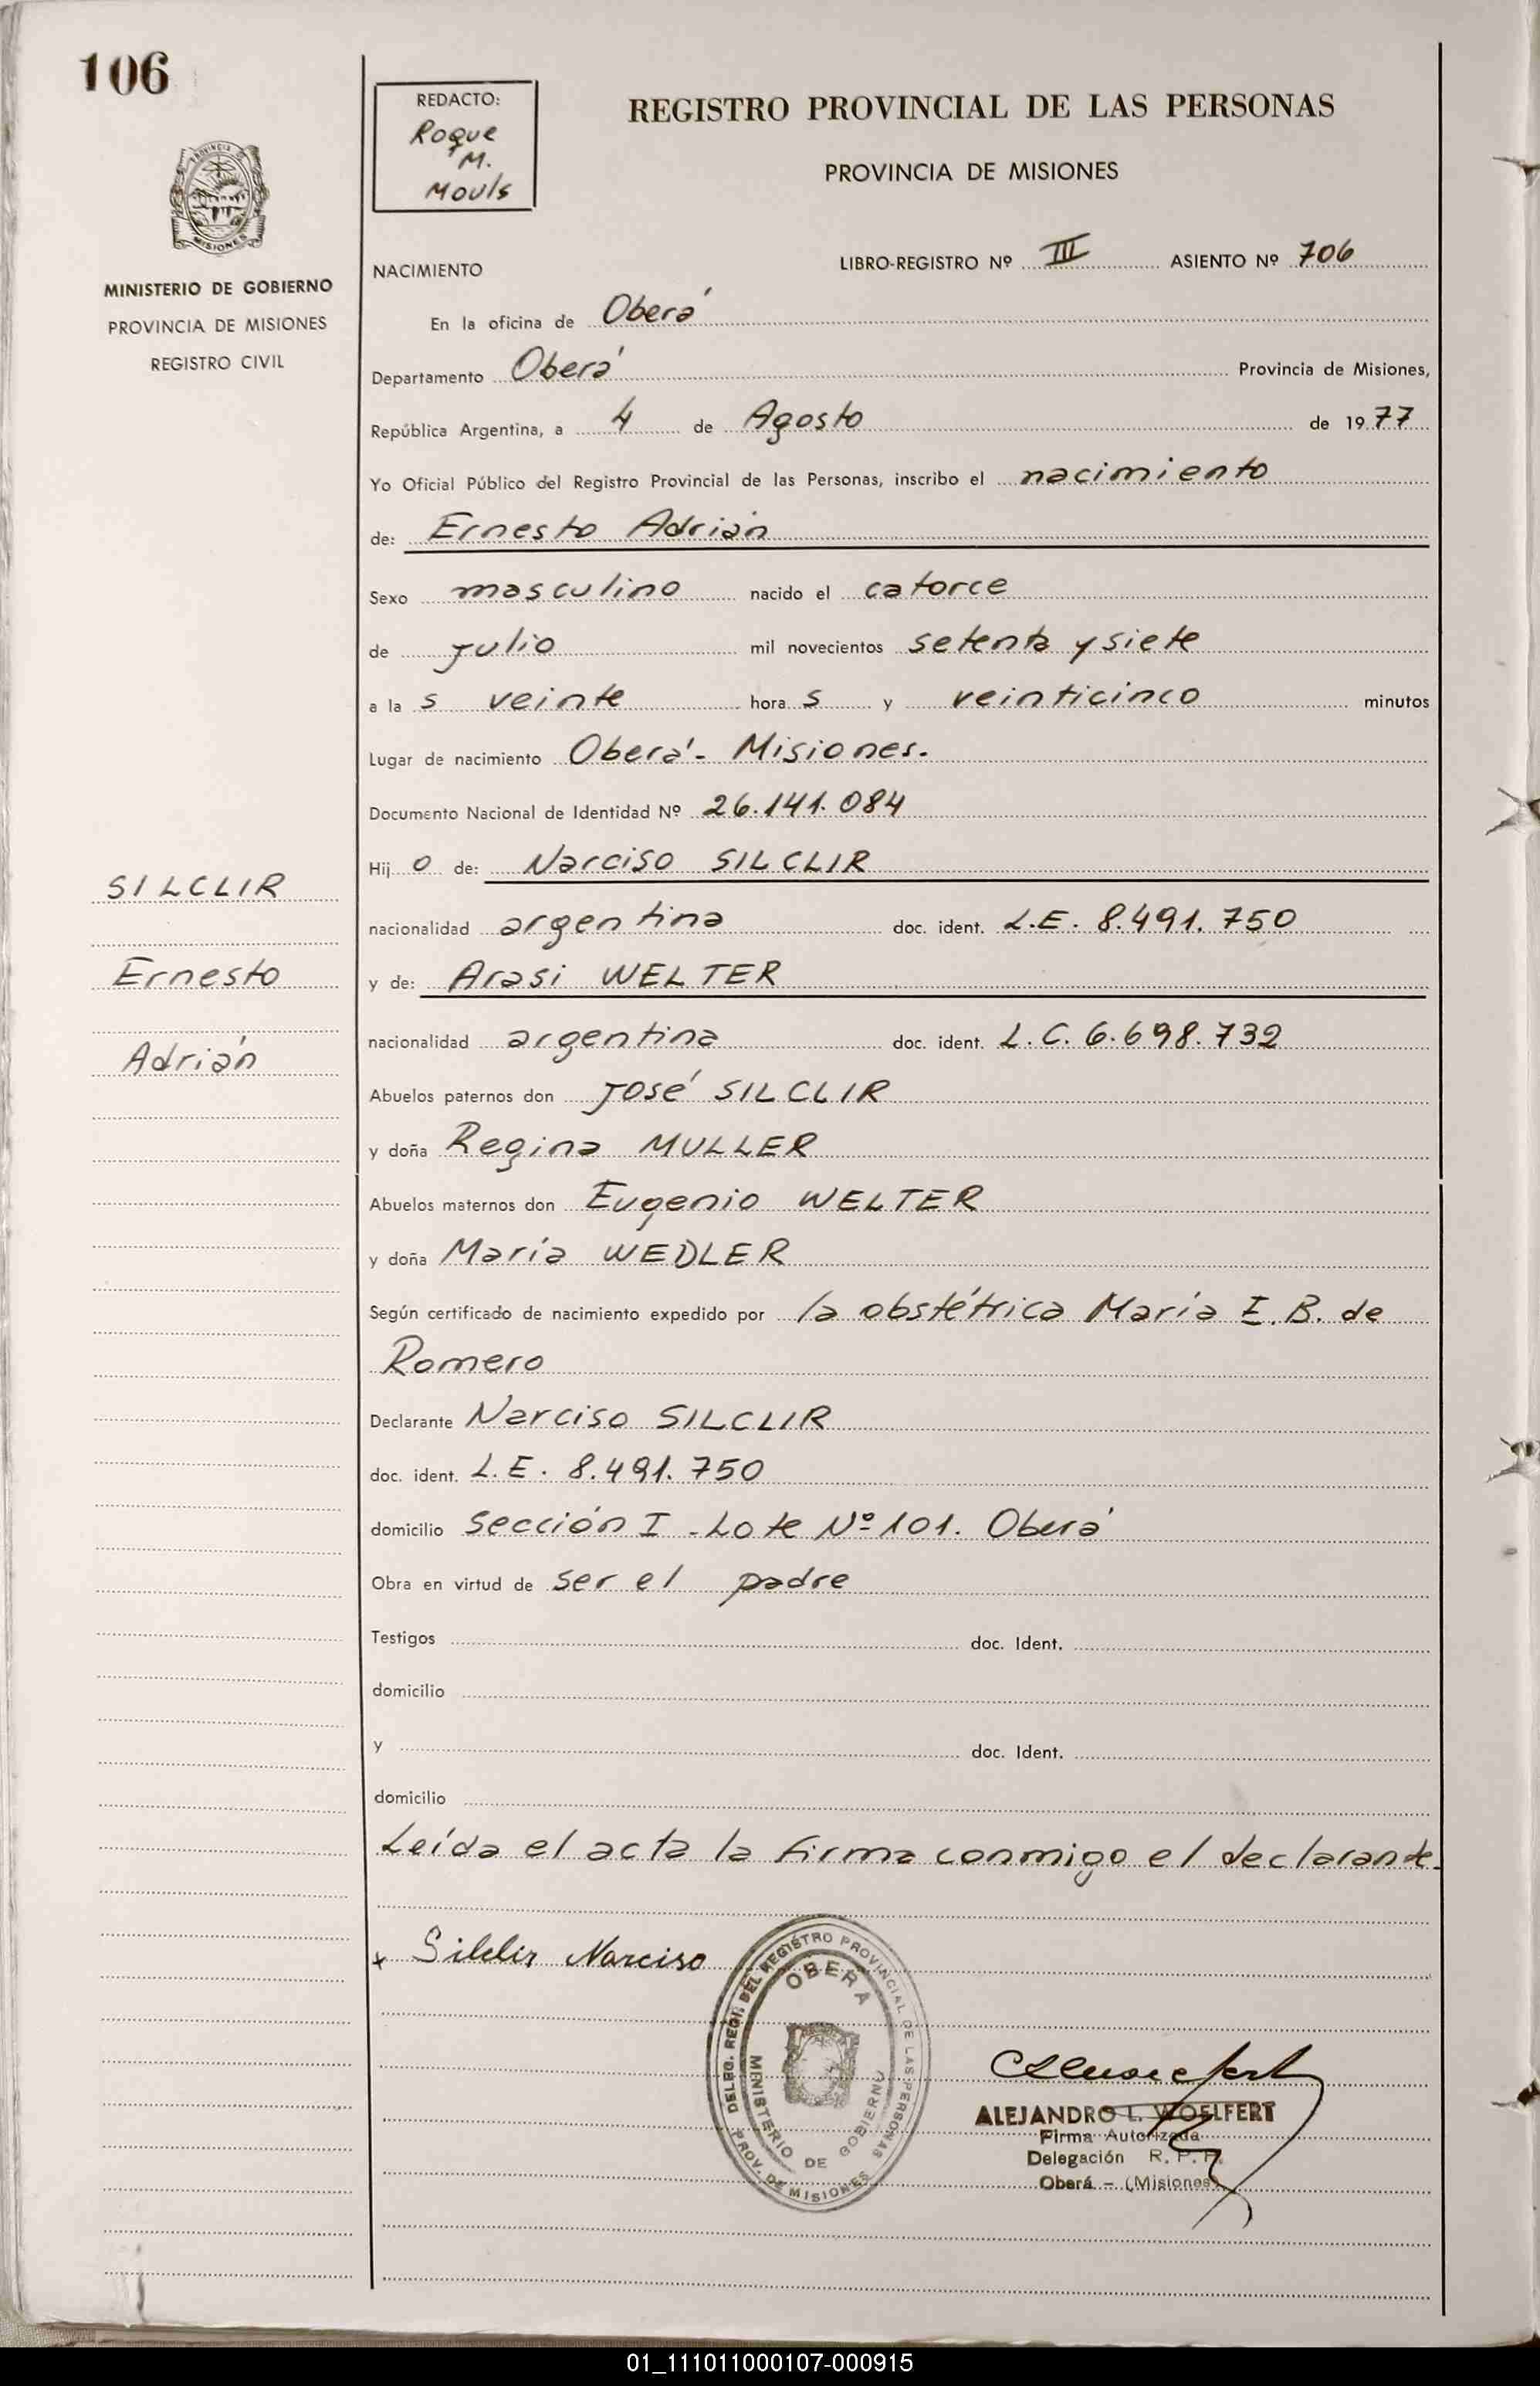 106
REDACTO:
Roque
M.
Mouls
REGISTRO PROVINCIAL DE LAS PERSONAS
PROVINCIA DE MISIONES
PROVINCIA
MISIONES
MINISTERIO DE GOBIERNO
PROVINCIA DE MISIONES
REGISTRO CIVIL
NACIMIENTO
LIBRO-REGISTRO Nº III ASIENTO Nº 706
En la oficina de Oberá
Departamento Oberá Provincia de Misiones,
República Argentina, a 4 de Agosto de 1977
Yo Oficial Público del Registro Provincial de las Personas, inscribo el nacimiento
de: Ernesto Adrián
Sexo masculino nacido el catorce
de julio mil novecientos setenta y siete
a la s veinte hora s y veinticinco minutos
Lugar de nacimiento Oberá - Misiones.
Documento Nacional de Identidad Nº 26.141.084
Hij o de: Narciso SILCLIR
SILCLIR
nacionalidad argentina doc. ident. L.E. 8.491.750
Ernesto
y de: Arasi WELTER
nacionalidad argentina doc. ident. L.C. 6.698.732
Adrián
Abuelos paternos don José SILCLIR
y doña Regina MULLER
Abuelos maternos don Eugenio WELTER
y doña María WEDLER
Según certificado de nacimiento expedido por la obstétrica María E.B. de
Romero
Declarante Narciso SILCLIR
doc. ident. L.E. 8.491.750
domicilio sección I - Lote Nº 101. Oberá
Obra en virtud de ser el padre
Testigos doc. Ident.
domicilio
y doc. Ident.
domicilio
Leída el acta la firma conmigo el declarante.
x Silclir Narciso
DELEG. REGI. DEL REGISTRO PROVINCIAL DE LAS PERSONAS
OBERA
MINISTERIO DE GOBIERNO
PROV. DE MISIONES
ALEJANDRO L. WOELFERT
Firma Autorizada
Delegación R. P. P.
Oberá - (Misiones)
01_111011000107-000915